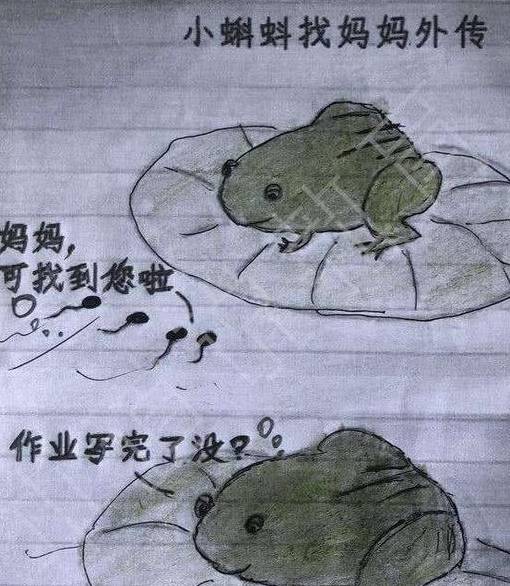 小蝌蚪找妈妈外传
妈妈，
可找到您啦
作业写完了没？